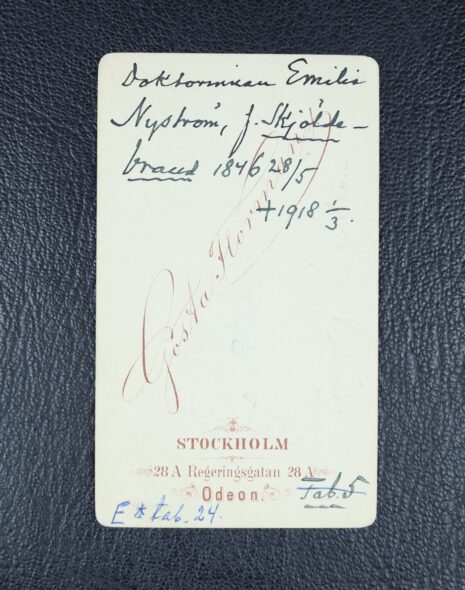 Doktorinnan Emilie
Nyström, f. Skjölde-
brand 1846 28/5
+ 1918 1/3.
Gösta Florman
STOCKHOLM
28 A Regeringsgatan 28 A
Odeon.
Tab. 5
E * tab. 24.